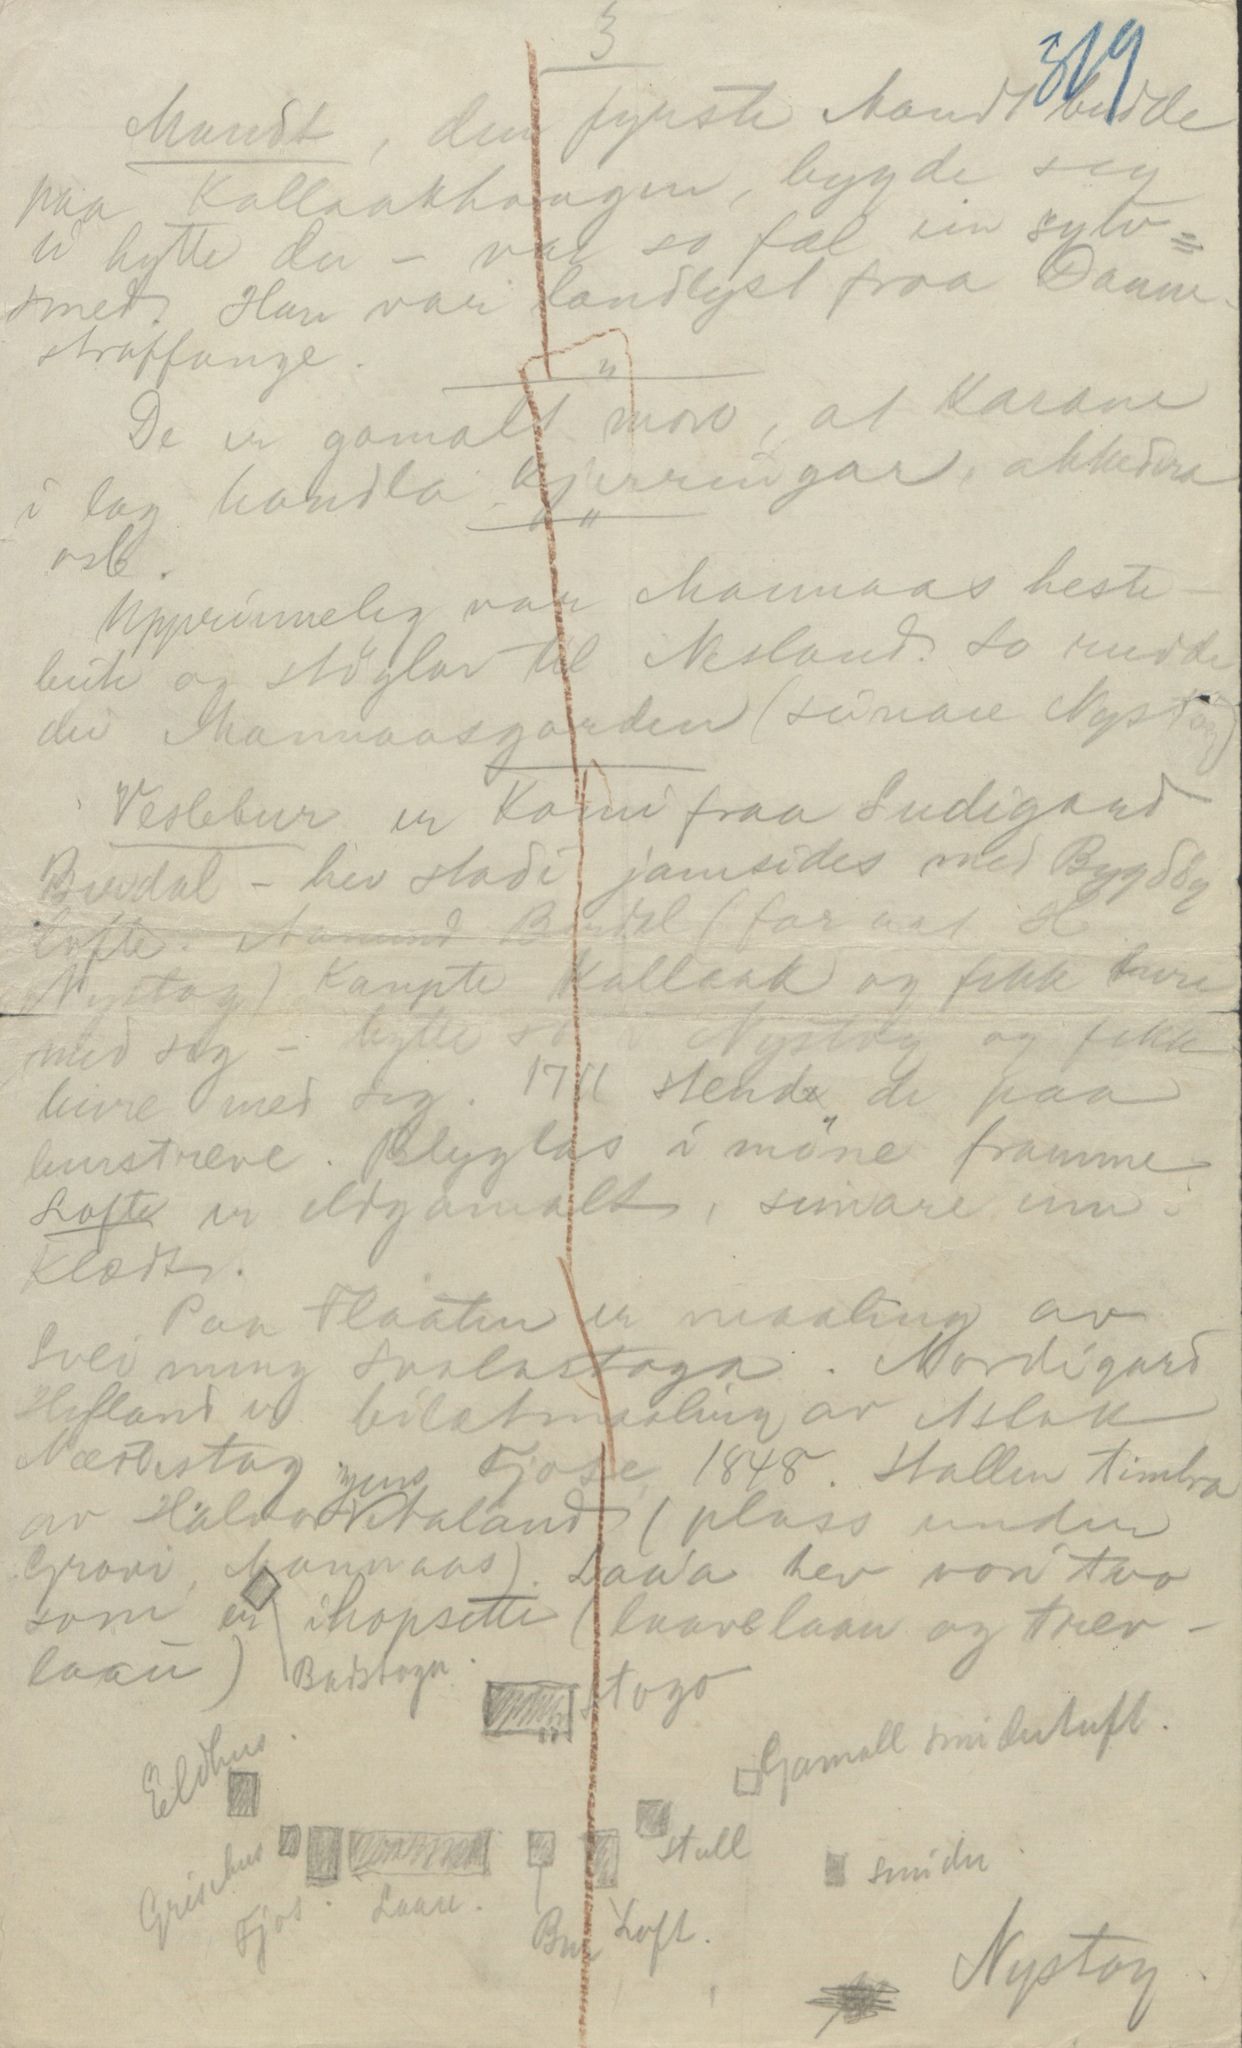 3
319
Mandt, den fyrste Mandt budde
paa Kallaakhaugen, bygde seg
ei hytte der – var so fæl ein sylv=
smed. Han var landlyst fraa Danm.
straffange.
"
De er gamalt i mors, at Karane
i lag handla kjerringar, akkedera
osb.
"
Upprinneleg var Mannaas heste-
beite og stöylar til Nesland. So rudde
dei Mannaasgarden (seinare Nystog)
Veslebur er Komi fraa Sudigard
Burdal – hev stadi jamsides med Bygdöy
lofte. Aamund Burdal (far aat H
Nystog) Kaupte Kallaak og fekk bure
med seg – bytte so i Nystog og fekk
bure med seg. 1711 stend de paa
burstreve. Blyglas i möne framme.
Lofte er eldgamalt, seinare um-
Klædt.
Paa Flaaten er maaling av
Sveinung Svalastoga. Nordigard
Hefland er biletmaaling av Aslak
Næstestog. Fjose 1848. Stallen timbra
av Halvor Nitaland (plass under
Grovi, Mannaas). Laaa hev vori two
som er ihopsette (laavelaan og trev-
laan)
Badstoga.
Stogo
Eldhus.
Gamall smideituft.
Grisehus
Fjos.
Laae.
Bur
Loft.
Stall
smidu
Nystog